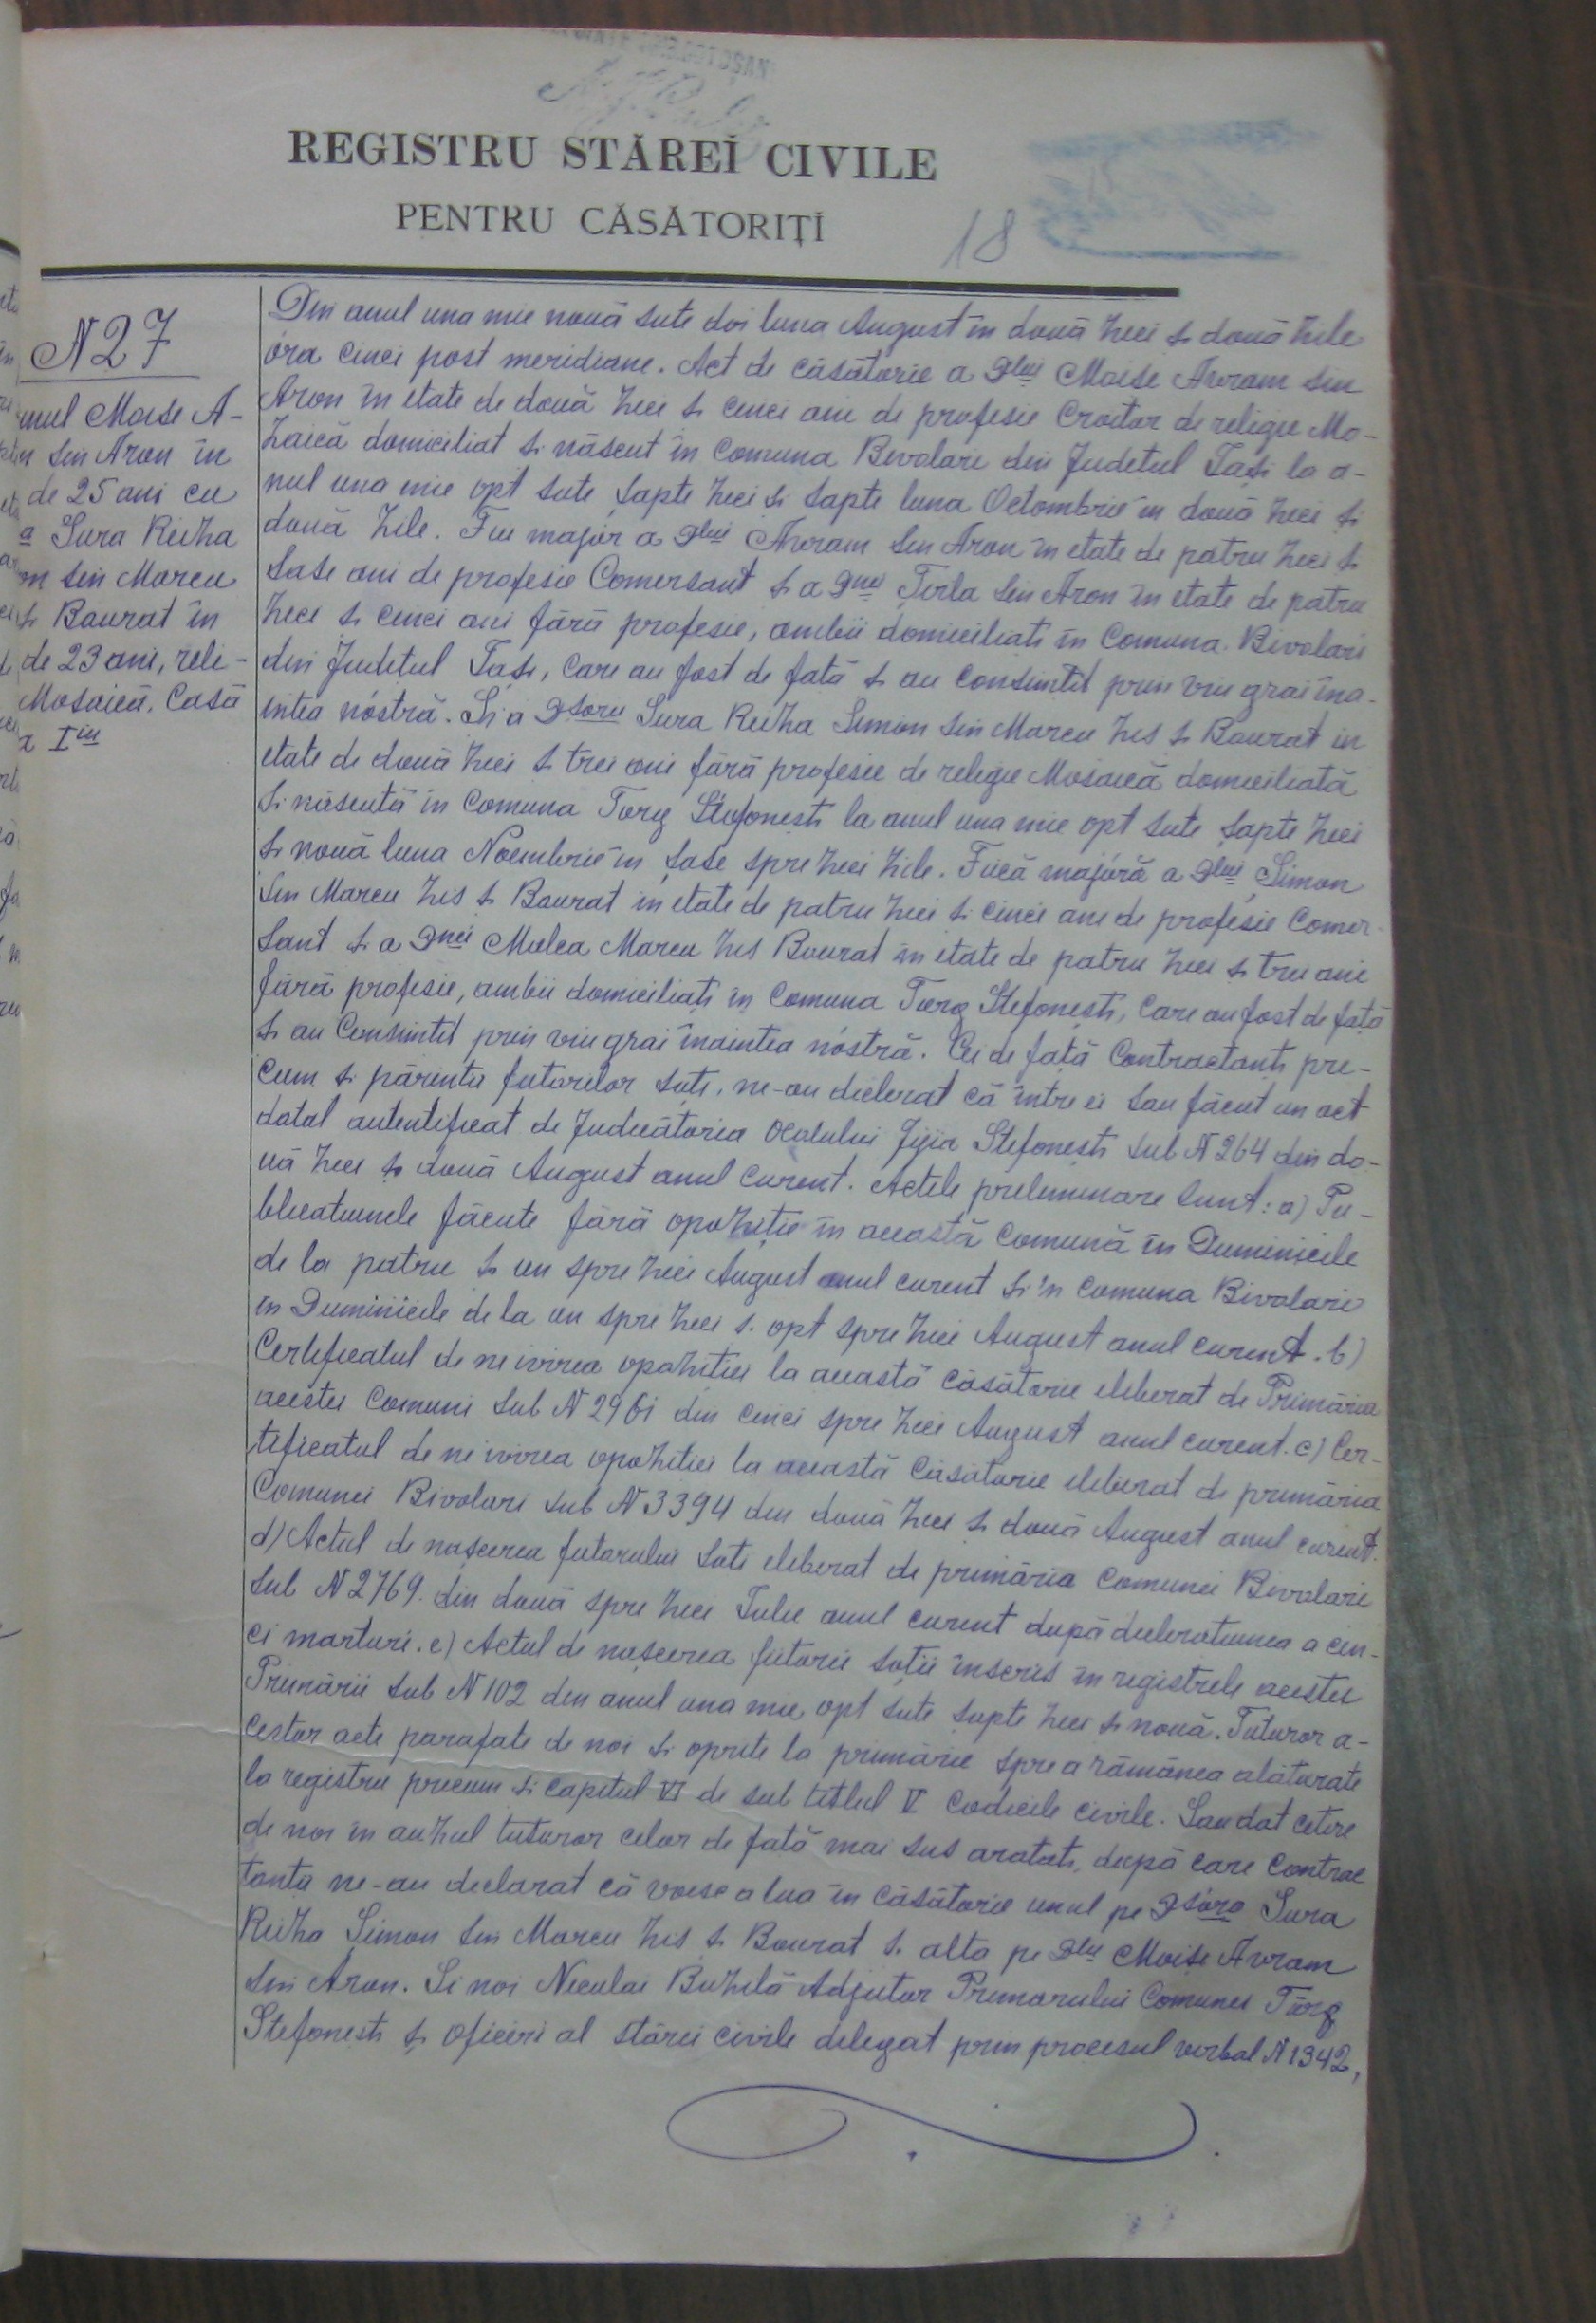 REGISTRU STĂREĬ CIVILE
PENTRU CĂSĂTORIȚĬ
18
N 27
unul Moise A-
sin Aron în
de 25 ani cu
a Sura Reiza
sin Marcu
și Baurat în
de 23 ani, reli-
Mosaică, Casă
a Iiu
Din anul una mie nouă sute doi luna August în două zeci și două zile
óra cinci post meridiane. Act de căsătorie a Dlui Moise Avram sin
Aron în etate de două zeci și cinci ani de profesie Croitor de religie Mo-
zaică domiciliat și născut în Comuna Bivolari din Judetul Iași la a-
nul una mie opt sute șapte zeci si sapte luna Octombrie în două zeci și
două zile. Fiu major a Dlui Avram sin Aron în etate de patru zeci și
șase ani de profesie Comersant și a Dnei Tirla sin Aron în etate de patru
zeci și cinci ani fără profesie, ambii domiciliati în Comuna Bivolari
din Judetul Iași, care au fost de fată și au consimtit prin viu grai îna-
intea nóstră. Și a Dșorei Sura Reiza Simon sin Marcu zis și Baurat in
etate de două zeci și trei ani fără profesie de religie Mosaică domiciliată
și născută în Comuna Tărg Ștefonești la anul una mie opt sute șapte zeci
și nouă luna Noembrie în șase spre zeci zile. Fiică majóră a Dlui Simon
sin Marcu zis și Baurat in etate de patru zeci și cinci ani de profesie Comer-
sant și a Dnei Malca Marcu zis Baurat în etate de patru zeci și trei ani
fără profesie, ambii domiciliați în Comuna Tărg Stefonești, care au fost de față
și au Consimtit prin viu grai înaintea nóstră. Cei de față Contractanți pre-
cum și părintii futurilor soți, ne-au declarat că între ei sau făcut un act
dotal autentificat de Judecătoria Ocolului Jijia Stefonești sub N 264 din do-
uă zeci și două August anul curent. Actele preliminare sunt: a) Pu-
blicatiunele făcute fără opoziție în această comună în Duminicile
de la patru și un spre zeci August anul curent și 'n comuna Bivolari
în Duminicile de la un spre zeci s. opt spre zeci August anul curent. b)
Certificatul de ne ivirea opozitiei la această căsătorie eliberat de Primăria
acestei Comuni sub N 2961 din cinci spre zeci August anul curent. c) Cer-
tificatul de ne ivirea opozitiei la această Căsătorie eliberat de primăria
Comunei Bivolari sub N 3394 din două zeci și două August anul curent.
d) Actul de nașcerea futorului soti eliberat de primăria comunei Bivolari
sub N 2769. din două spre zeci Iulie anul curent după declaratiunea a cin-
ci marturi. e) Actul de nașcerea fiitorii soții înscris în registrele acestei
Primării sub N 102 din anul una mie opt șute șapte zeci și nouă. Tuturor a-
cestor acte parafate de noi și oprite la primărie spre a rămănea alăturate
la registru precum și capitul VI de sub titlul V codicile civile. Sau dat cetire
de noi în auzul tuturor celor de fată mai sus aratati, după care contrac
tantii ne-au declarat că voesc a lua în căsătorie unul pe Dșóra Sura
Reiza Simon sin Marcu zis și Baurat s. alta pe Dlu Moise Avram
sin Aron. Și noi Neculai Buzilă Adjutor Primarului Comunei Tărg
Stefonesti și oficeri al stărei civile delegat prin procesul verbal N 1342,